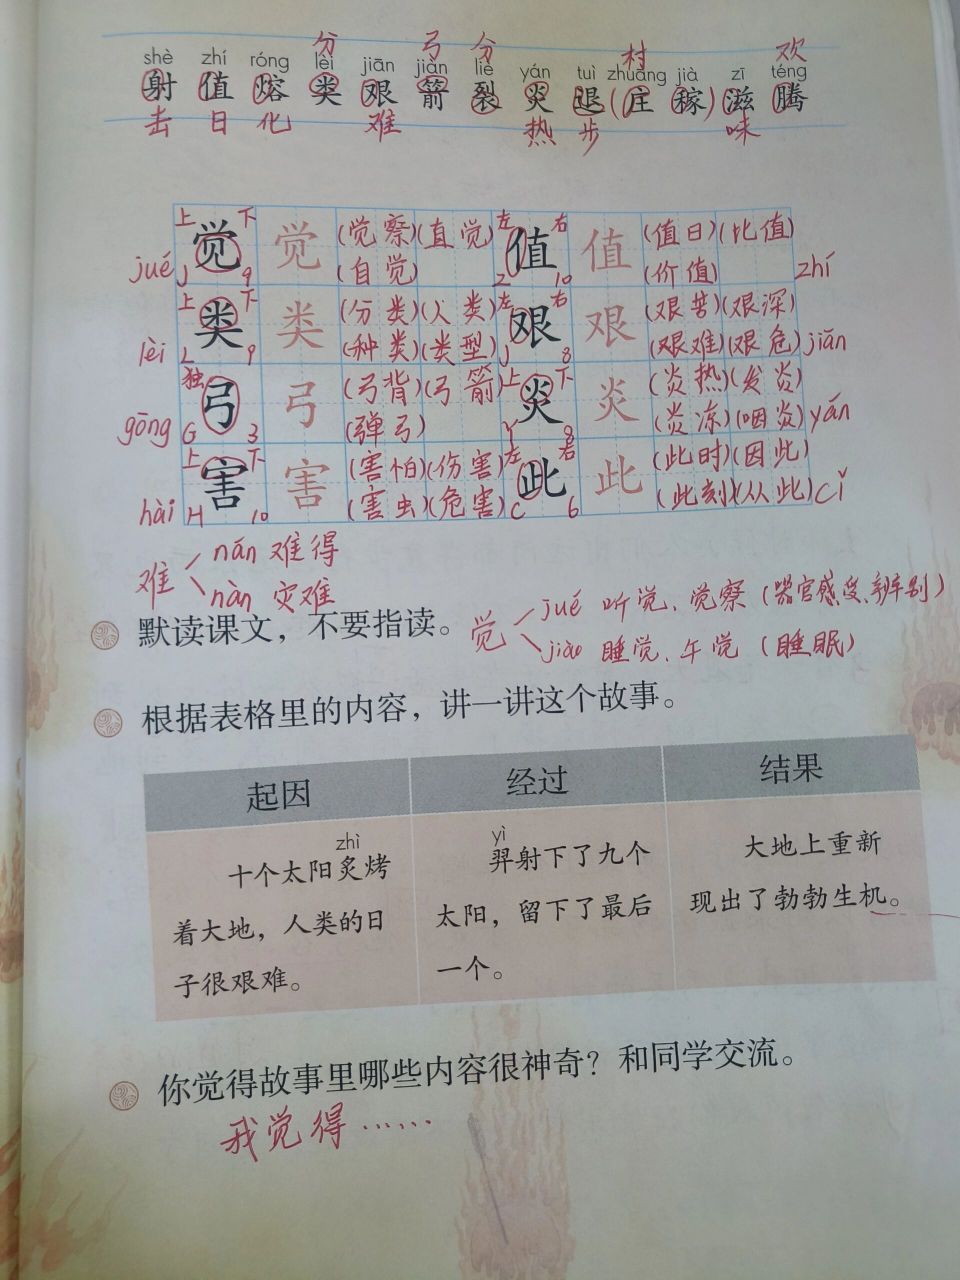 分 弓 分 村 欢
shè zhí róng lèi jiān jiàn liè yán tuì zhuāng jià zī téng
射 值 熔 类 艰 箭 裂 炎 退(庄 稼)滋 腾
击 日 化 难 热 步 味
上 觉 下 觉 (觉察)(直觉) 左 值 右 值 (值日)(比值)
jué J 9 (自觉) Z 10 (价值) zhí
上 类 下 类 (分类)(人类) 左 艰 右 艰 (艰苦)(艰深)
lèi L 9 (种类)(类型) J 8 (艰难)(艰危) jiān
独 弓 弓 (弓背)(弓箭) 上 炎 下 炎 (炎热)(发炎)
gōng G 3 (弹弓) Y 8 (炎冻)(咽炎) yán
上 害 下 害 (害怕)(伤害) 左 此 右 此 (此时)(因此)
hài H 10 (害虫)(危害) C 6 (此刻)(从此) cǐ
难 nán 难得
nàn 灾难
觉 jué 听觉、觉察(器官感受、辨别)
jiào 睡觉、午觉(睡眠)
默读课文，不要指读。
根据表格里的内容，讲一讲这个故事。
起因 经过 结果
zhì
十个太阳炙烤
着大地，人类的日
子很艰难。
yì
羿射下了九个
太阳，留下了最后
一个。
大地上重新
现出了勃勃生机。
你觉得故事里哪些内容很神奇？和同学交流。
我觉得……